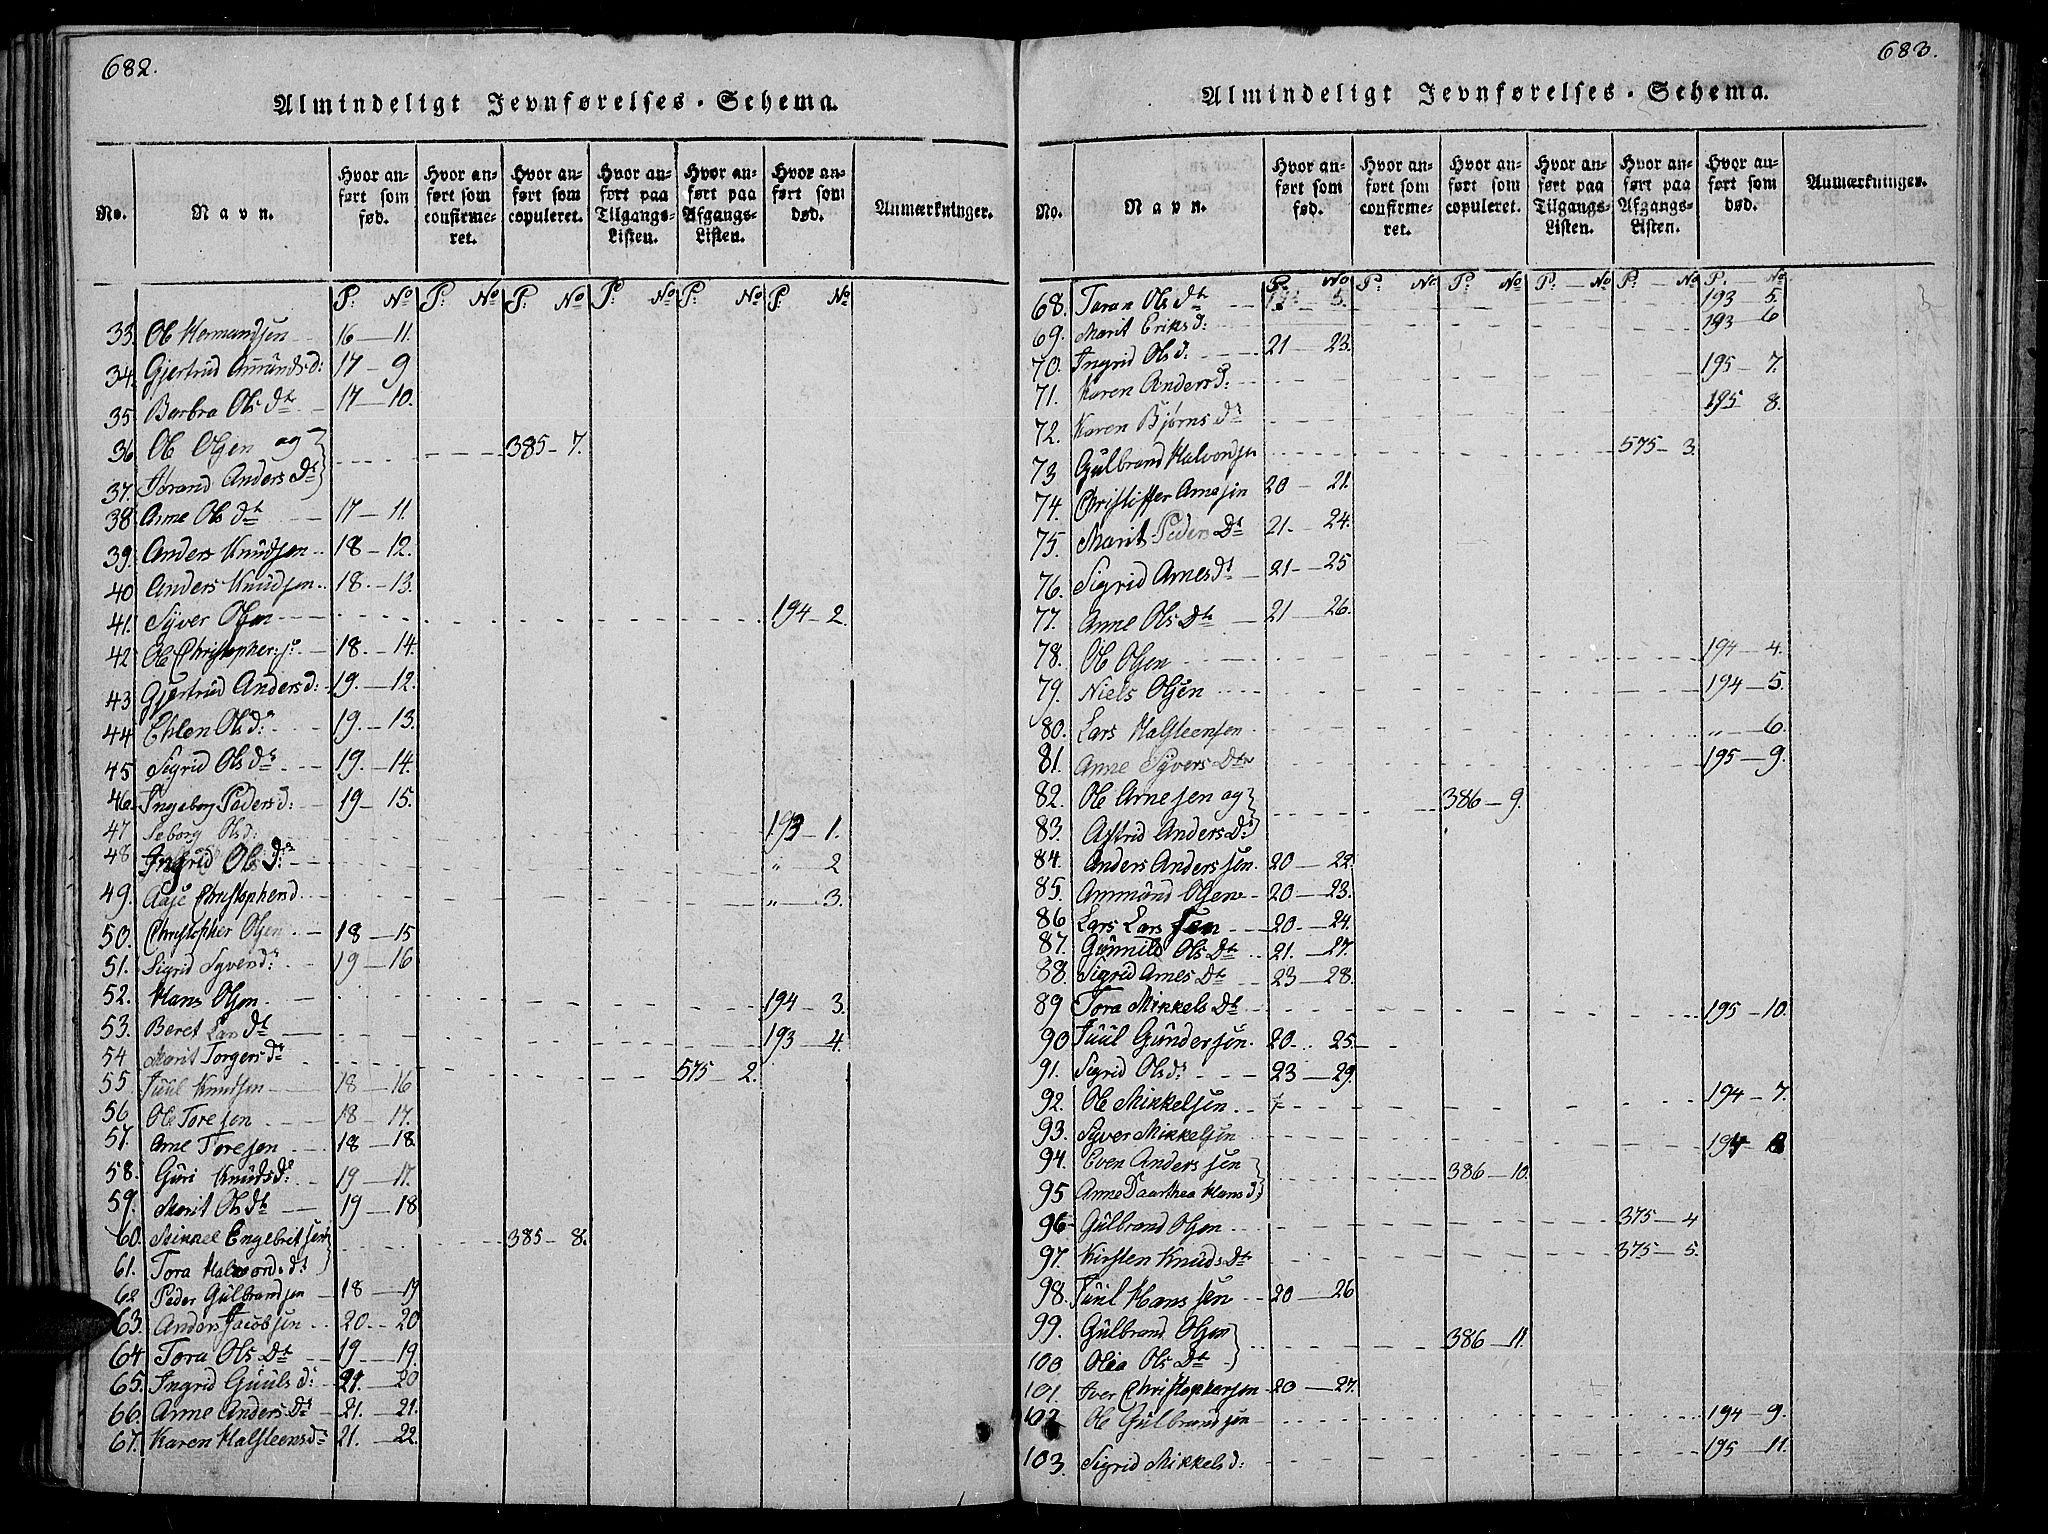 682.
Almindeligt Jevnførelses-Schema.
No. Navn. Hvor anført som fød. Hvor anført som confirmeret. Hvor anført som copuleret. Hvor anført paa Tilgangs-Listen. Hvor anført paa Afgangs-Listen. Hvor anført som død. Anmærkninger.
P: No P: No P: No P: No P: No P No
33. Ole Hermandsen 16 - 11.
34. Gjertrud Amunds d: 17 - 9
35 Barbra Ols Dtr 17 - 10.
36 Ole Olsen og 385 - 7.
37. Jorand Anders Dtr
38 Anne Ols dtr 17 - 11.
39. Anders Knudsen 18 - 12.
40 Anders Knudsen 18 - 13.
41. Syver Olsen 194 - 2.
42 Ole Christopher:s: 18. - 14.
43 Gjertrud Anders d: 19. - 12.
44 Ehlen Ols d: 19. - 13.
45 Sigrid Ols dtr 19. - 14.
46. Ingeborg Peders d: 19 - 15.
47 Seborg Ols d: 193 - 1.
48 Ingrid Ols d: " - 2
49. Aase Christophers d " - 3.
50. Christopher Olsen 18 - 15
51. Sigrid Syvers d: 19 - 16
52. Hans Olsen 194 - 3.
53. Beret Lars dtr 193 - 4.
54 Marit Torgers dtr 575 - 2.
55 Juul Knudsen 18 - 16
56 Ole Toresen 18 - 17.
57. Arne Toresen 18 - 18.
58. Guri Knuds d: 19 - 17.
59. Marit Ols dtr 19 - 18
60. Mikkel Engebretsen 385 - 8.
61. Tora Halvords dtr
62 Peder Gulbrandsen 18 - 19
63. Anders Jacobsen 20. - 20
64 Tora Ols Dtr 19 - 19.
65. Ingrid Guuls d: 21. - 20
66. Anne Anders dtr 21. - 21.
67. Karen Halsteens d: 21. - 22.
683.
Almindeligt Jevnførelses-Schema.
No. Navn. Hvor anført som fød. Hvor anført som confirmeret. Hvor anført som copuleret. Hvor anført paa Tilgangs-Listen. Hvor anført paa Afgangs-Listen. Hvor anført som død. Anmærkninger.
P: No P: No P: No P: No P: No P. No
68. Toran Ols dtr 193 5.
69. Marit Eriks d: 193 - 6
70. Ingrid Ols d: 21 - 23.
71. Karen Anders d: 195 - 7.
72. Karen Bjørns dtr 195 8.
73 Gulbrand Halvordsen 575 - 3.
74. Christoffer Arnesen 20 - 21.
75. Marit Peders Dtr 21. - 24.
76. Sigrid Arnes dtr 21 - 25
77. Anne Ols Dtr 21 - 26.
78. Ole Olsen 194 - 4.
79. Niels Olsen 194 - 5.
80. Lars Halsteensen " - 6.
81. Anne Syvers Dtr 195 - 9.
82. Ole Arnesen og 386 - 9.
83. Astrid Anders Dtr
84. Anders Anderssen 20 - 22.
85. Ammund Olsen 20 - 23.
86 Lars Larssen 20. - 24.
87. Gunnild Ols Dtr 21. - 27.
88. Sigrid Arnes Dtr 23 - 28.
89 Tora Mikkels Dtr 195 - 10.
90 Juul Gundersen 20 - 25
91. Sigrid Ols d: 23 - 29.
92. Ole Mikkelsen 194 - 7.
93. Syver Mikkelsen 194 - 8
94. Even Anderssen 386 - 10.
95 Anne Daarthea Hans D:
96 Gulbrand Olsen 375 - 4
97. Kirsten Knuds Dtr 375 - 5.
98. Juul Hanssen 20 - 26
99. Gulbrand Olsen 386 - 11.
100 Olea Ols Dtr
101. Iver Christophersen 20 - 27.
102 Ole Gulbrandsen 194 - 9.
103. Sigrid Mikkels d: 195 - 11.